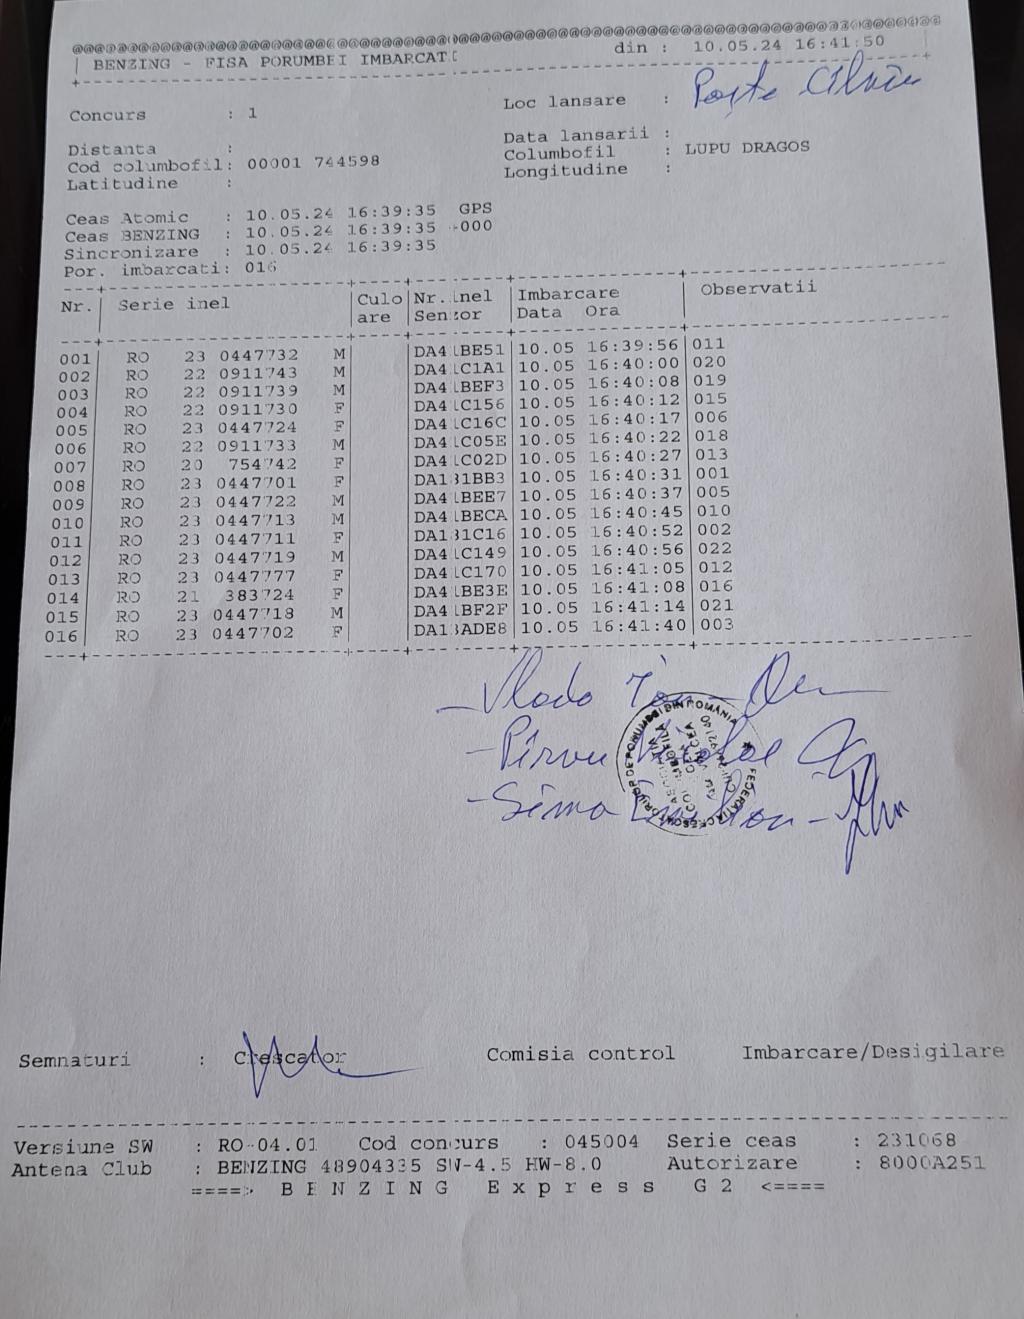 @@@@@@@@@@@@@@@@@@@@@@@@@@@@@@@@@@@@@@@@@@@@@@@@@@@@@@@@@@@@@@@@@@@@@@@@@@@@@@@@
BENZING - FISA PORUMBEI IMBARCATI din : 10.05.24 16:41:50
Concurs : 1 Loc lansare :
Distanta : Data lansarii :
Cod columbofil: 00001 744598 Columbofil : LUPU DRAGOS
Latitudine : Longitudine :
Ceas Atomic : 10.05.24 16:39:35 GPS
Ceas BENZING : 10.05.24 16:39:35 -000
Sincronizare : 10.05.24 16:39:35
Por. imbarcati: 016
Nr. | Serie inel | Culo | Nr. inel | Imbarcare | Observatii
are | Senzor | Data Ora
001 RO 23 0447732 M DA41BE51 10.05 16:39:56 011
002 RO 22 0911743 M DA41C1A1 10.05 16:40:00 020
003 RO 22 0911739 M DA41BEF3 10.05 16:40:08 019
004 RO 22 0911730 F DA41C156 10.05 16:40:12 015
005 RO 23 0447724 F DA41C16C 10.05 16:40:17 006
006 RO 22 0911733 M DA41C05E 10.05 16:40:22 018
007 RO 20 754742 F DA41C02D 10.05 16:40:27 013
008 RO 23 0447701 F DA131BB3 10.05 16:40:31 001
009 RO 23 0447722 M DA41BEE7 10.05 16:40:37 005
010 RO 23 0447713 M DA41BECA 10.05 16:40:45 010
011 RO 23 0447711 F DA131C16 10.05 16:40:52 002
012 RO 23 0447719 M DA41C149 10.05 16:40:56 022
013 RO 23 0447777 F DA41C170 10.05 16:41:05 012
014 RO 21 383724 F DA41BE3E 10.05 16:41:08 016
015 RO 23 0447718 M DA41BF2F 10.05 16:41:14 021
016 RO 23 0447702 F DA13ADE8 10.05 16:41:40 003
- Vlado Ion
- Pîrvu
- Sima
Semnaturi : Crescator Comisia control Imbarcare/Desigilare
Versiune SW : RO-04.01 Cod concurs : 045004 Serie ceas : 231068
Antena Club : BENZING 48904335 SW-4.5 HW-8.0 Autorizare : 8000A251
====> B E N Z I N G E x p r e s s G 2 <====